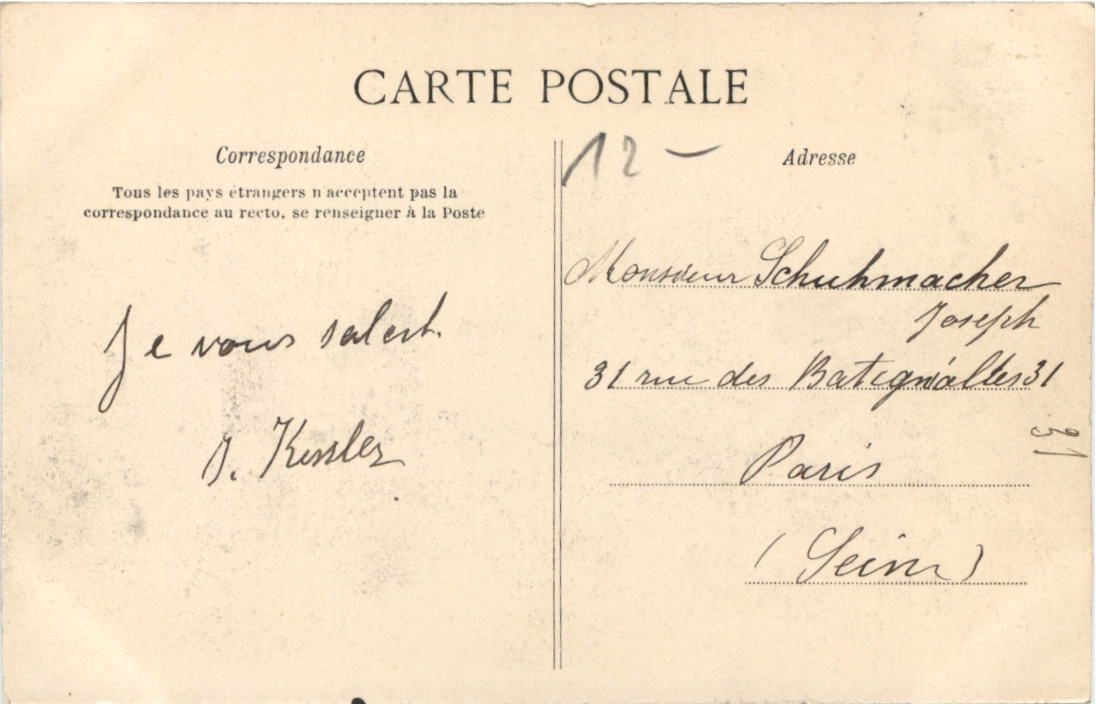 CARTE POSTALE
Correspondance
Tous les pays étrangers n'acceptent pas la
correspondance au recto, se renseigner à la Poste
Je vous salut
J. Kessler
12 —
Adresse
Monsieur Schuhmacher
Joseph
31 rue des Batignialles 31
Paris
(Seine)
31